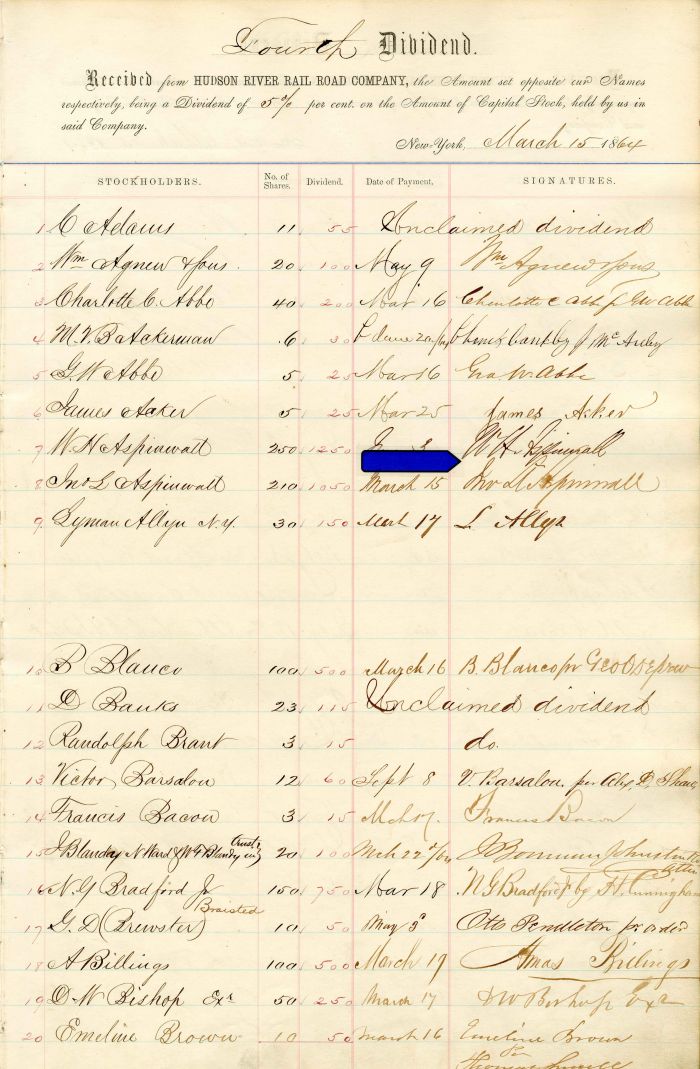 Fourth Dividend.
Received from HUDSON RIVER RAIL ROAD COMPANY, the Amount set opposite our Names
respectively, being a Dividend of 5% per cent. on the Amount of Capital Stock, held by us in
said Company.
New-York, March 15 1864
STOCKHOLDERS. No. of Shares. Dividend. Date of Payment, SIGNATURES.
1 C Adams 11 55 Unclaimed dividend
2 Wm Agnew & Sons 20 100 May 9 Wm Agnew & Sons
3 Charlotte C. Abbe 40 200 Mar 16 Charlotte C Abbe pr Geo W Abbe
4 M. V. B Ackerman 6 30 by J Mc
5 G. W Abbe 5 25 Mar 16 Geo W. Abbe
6 James Acker 5 25 Mar 25 James Acker
7 W. H Aspinwall 250 1250 3 W H Aspinwall
8 Jno L Aspinwall 210 1050 March 15 Jno L Aspinwall
9 Lyman Allyn N.Y. 30 150 March 17 L. Allyn
10 B Blanco 100 500 March 16 B. Blanco pr Geo
11 D Banks 23 115 Unclaimed dividend
12 Randolph Brant 3 15 do.
13 Victor Barsalou 12 60 Sept 8 V. Barsalou. per Alex D. Shaw
14 Francis Bacon 3 15 Mch 17. Francis Bacon
15 J Blandy N Ward & W F Blandy trust 20 100 Mch 22 /64 J Boorman Johnston Attn
16 N. G Bradford Jr 150 750 Mar 18 N G Bradford Jr by Cunningham
Braisted
17 G. D (Brewster) 10 50 May 3 Otto Pendleton pr order
18 A Billings 100 500 March 19 Amas Billings
19 D W Bishop Exr 50 250 March 17 D W Bishop Exr
20 Emeline Brown 10 50 March 16 Emeline Brown
Per
Thomas